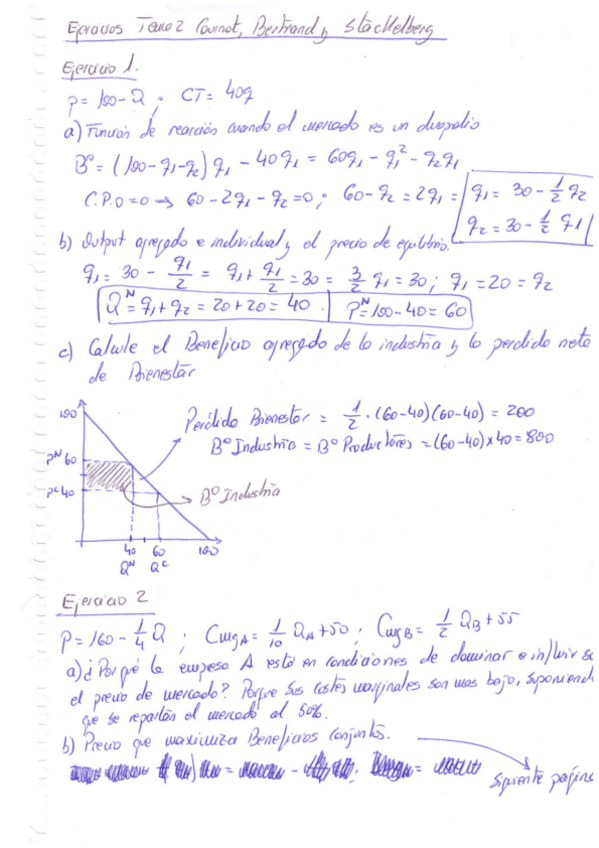 Ejercicios Tema 2 Cournot, Bertrand y Stackelberg
Ejercicio 1.
P = 100 - Q ; CT = 40q
a) Función de reacción cuando el mercado es un duopolio
Bº = (100 - q₁ - q₂) q₁ - 40q₁ = 60q₁ - q₁² - q₂q₁
C.P.O = 0 → 60 - 2q₁ - q₂ = 0 ; 60 - q₂ = 2q₁ = q₁ = 30 - 1/2 q₂
q₂ = 30 - 1/2 q₁
b) Output agregado e individual y el precio de equilibrio.
q₁ = 30 - q₁/2 = q₁ + q₁/2 = 30 = 3/2 q₁ = 30 ; q₁ = 20 = q₂
Qᴺ = q₁ + q₂ = 20 + 20 = 40 . Pᴺ = 100 - 40 = 60
c) Calcule el Beneficio agregado de la industria y la perdida neta
de Bienestar
100
Pérdida Bienestar = 1/2 · (60-40)(60-40) = 200
Bº Industria = Bº Productores = (60-40) x 40 = 800
Pᴺ 60
Pᶜ 40
Bº Industria
40 60 100
Qᴺ Qᶜ
Ejercicio 2
P = 160 - 1/4 Q ; CmgA = 1/10 QA + 50 ; CmgB = 1/2 QB + 55
a) ¿Por qué la empresa A está en condiciones de dominar e influir
el precio de mercado? Porque sus costes marginales son mas bajo,
que se repartan el mercado al 50%.
b) Precio que maximiza Beneficios conjuntos.
siguiente página